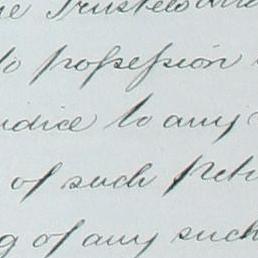 Trustees
to possession
udice to any
of such
g of any such